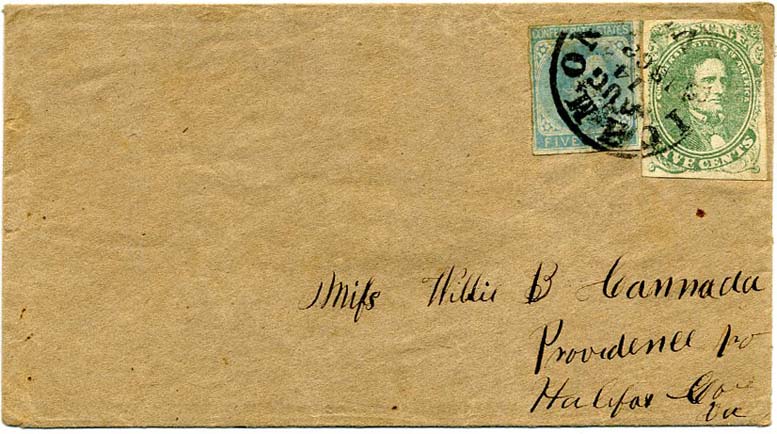 CONFEDERATE STATES
FIVE
STATES OF AMERICA
FIVE CENTS
RICHMOND
AUG
14
1862
Miſs Willie B Cannada
Providence Po
Halifax Co
Va